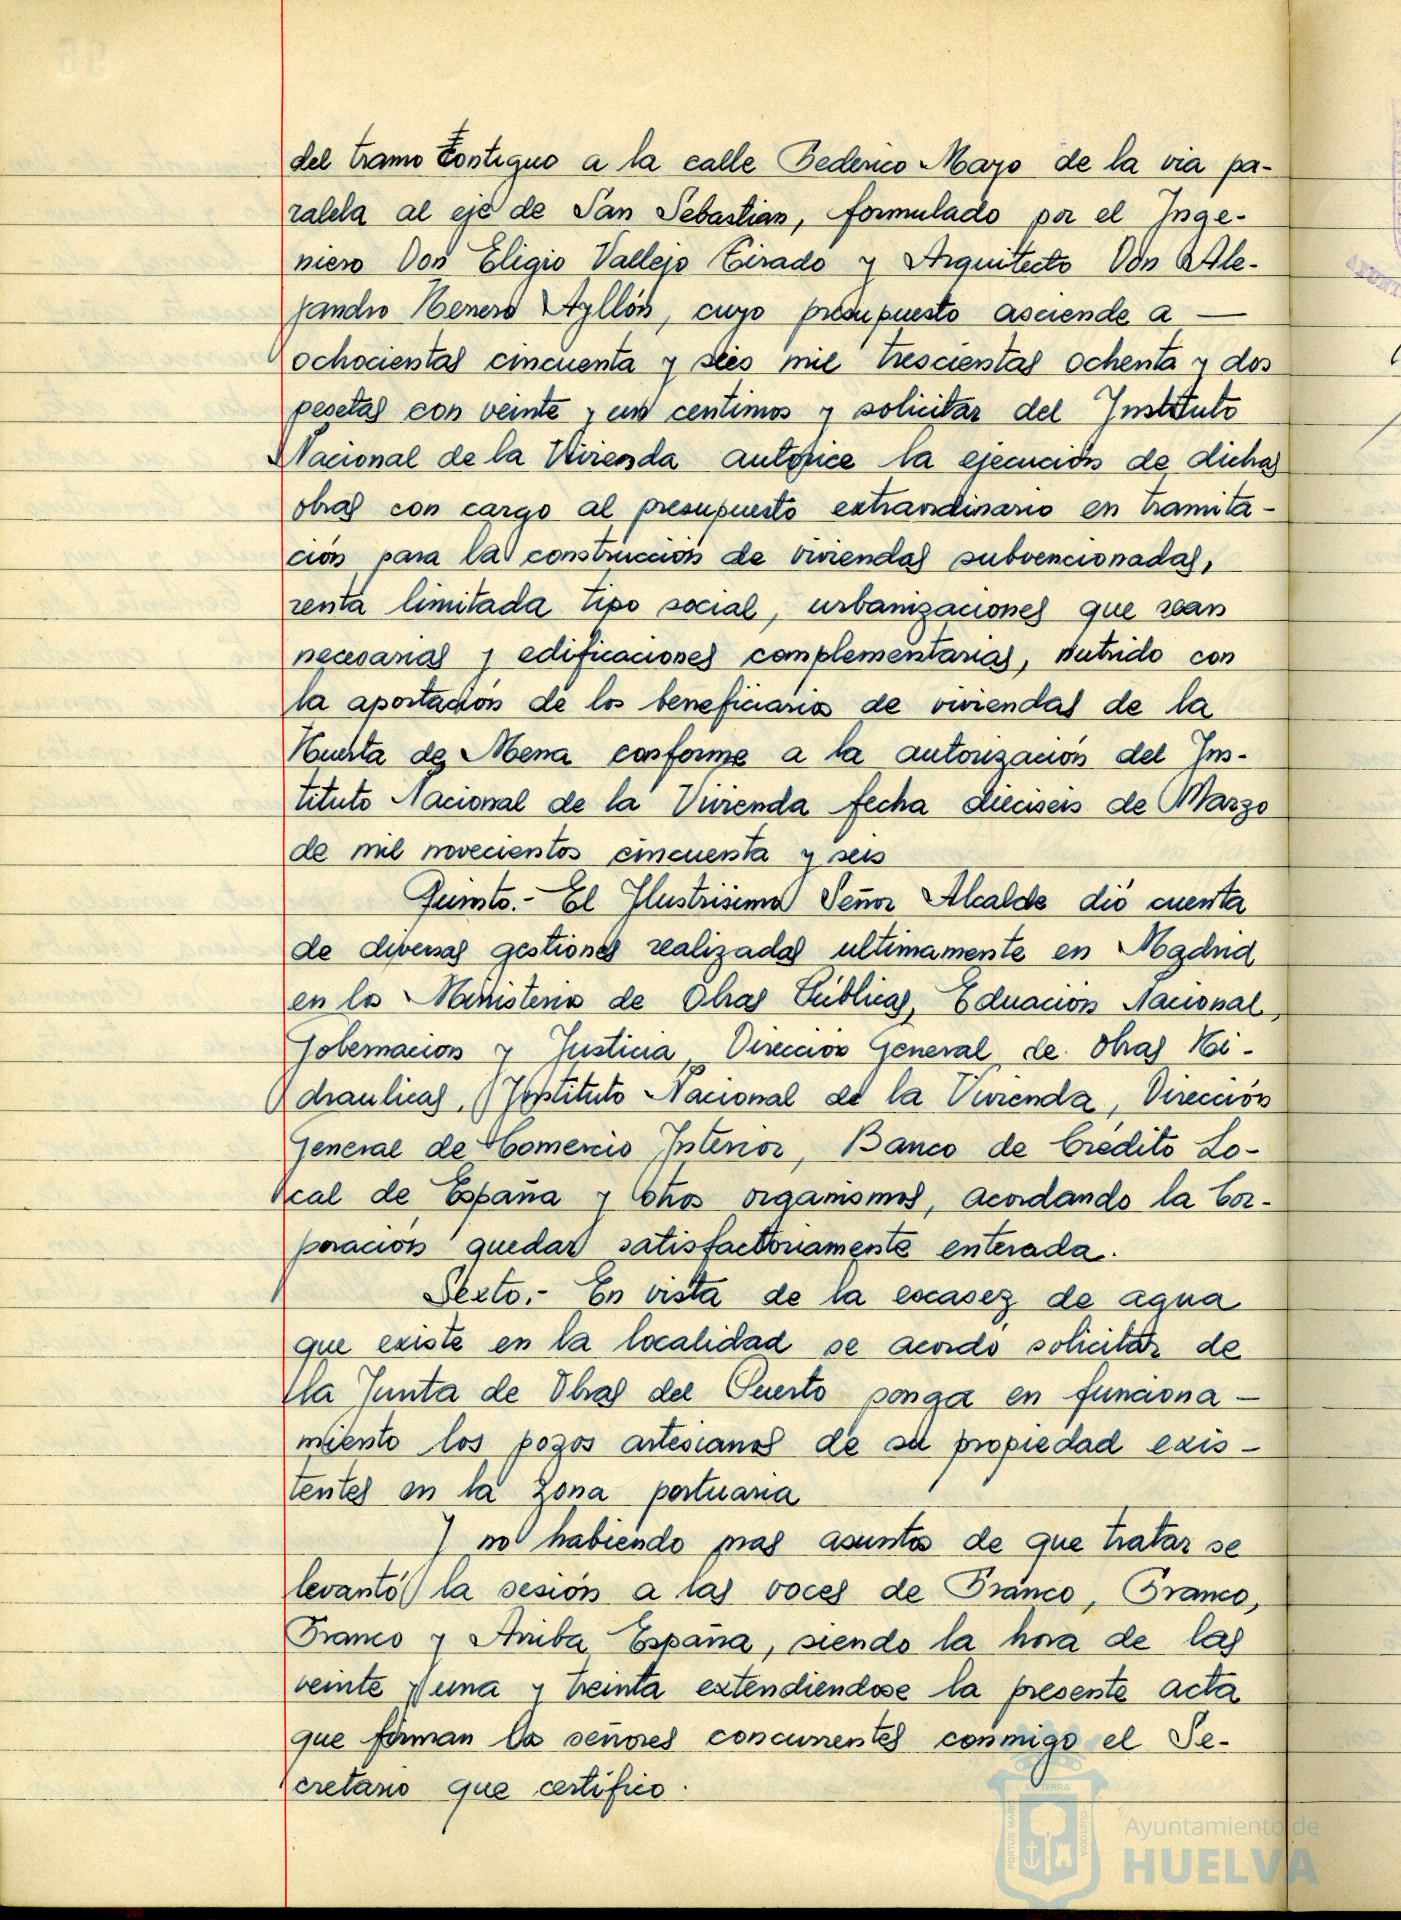 del tramo contiguo a la calle Federico Mayo de la via pa-
ralela al eje de San Sebastian, formulado por el Inge-
niero Don Eligio Vallejo Tirado y Arquitecto Don Ale-
jandro Herrero Ayllón, cuyo presupuesto asciende a —
ochocientas cincuenta y seis mil trescientas ochenta y dos
pesetas con veinte y un centimos y solicitar del Instituto
Nacional de la Vivienda autorice la ejecución de dichas
obras con cargo al presupuesto extraordinario en tramita-
ción para la construcción de viviendas subvencionadas,
renta limitada tipo social, urbanizaciones que sean
necesarias y edificaciones complementarias, nutrido con
la aportación de los beneficiarios de viviendas de la
Huerta de Mena conforme a la autorización del Ins-
tituto Nacional de la Vivienda fecha dieciseis de Marzo
de mil novecientos cincuenta y seis
Quinto.- El Ilustrisimo Señor Alcalde dió cuenta
de diversas gestiones realizadas ultimamente en Madrid
en los Ministerios de Obras Públicas, Eduación Nacional,
Gobernacion y Justicia, Dirección General de Obras Hi-
draulicas, Instituto Nacional de la Vivienda, Dirección
General de Comercio Interior, Banco de Crédito Lo-
cal de España y otros organismos, acordando la Cor-
poración quedar satisfactoriamente enterada.
Sexto.- En vista de la escasez de agua
que existe en la localidad se acordó solicitar de
la Junta de Obras del Puerto ponga en funciona-
miento los pozos artesianos de su propiedad exis-
tentes en la zona portuaria
Y no habiendo mas asuntos de que tratar se
levantó la sesión a las voces de Franco, Franco,
Franco y Arriba España, siendo la hora de las
veinte y una y treinta extendiendose la presente acta
que firman los señores concurrentes conmigo el Se-
cretario que certifico.
Ayuntamiento de
HUELVA